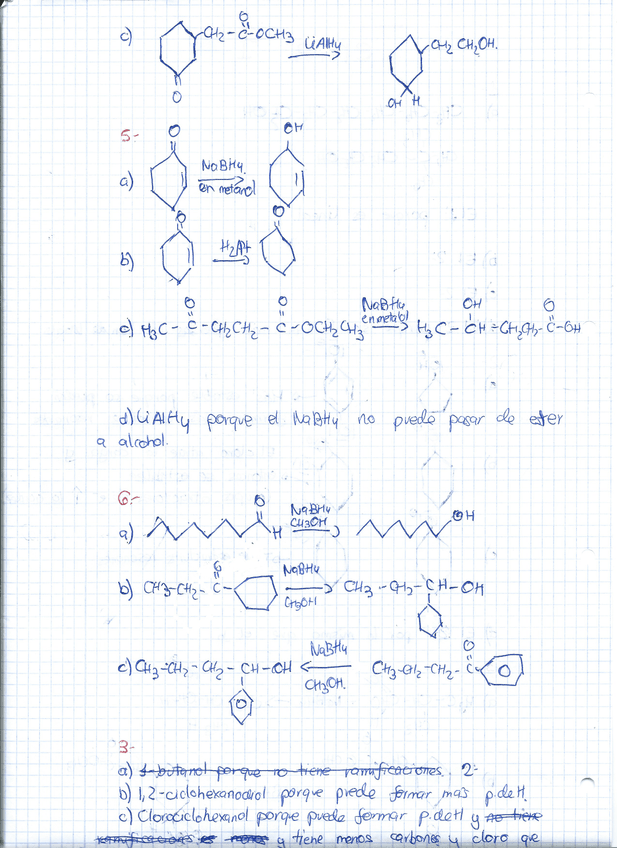 c) CH2 - C - OCH3 LiAlH4 CH2 CH2OH.
O
O
OH H
5-
O
OH
a) NaBH4 en metanol
O
O
b) H2/Pt
O O OH O
c) H3C - C - CH2CH2 - C - OCH2CH3 NaBH4 en metanol H3C - CH - CH2CH2 - C - OH
d) LiAlH4 porque el NaBH4 no puede pasar de ester
a alcohol.
6-
O
a) H NaBH4 CH3OH OH
O
b) CH3-CH2- C - NaBH4 CH3OH CH3 - CH2 - CH - OH
O
c) CH3-CH2- CH2 - CH - OH NaBH4 CH3OH. CH3-CH2-CH2 - C
3-
a) 1-butanol porque no tiene ramificaciones. 2-
b) 1,2-ciclohexanodiol porque puede formar mas p.deH.
c) Clorociclohexanol porque puede formar p.deH y no tiene
ramificaciones y tiene menos carbones y cloro que